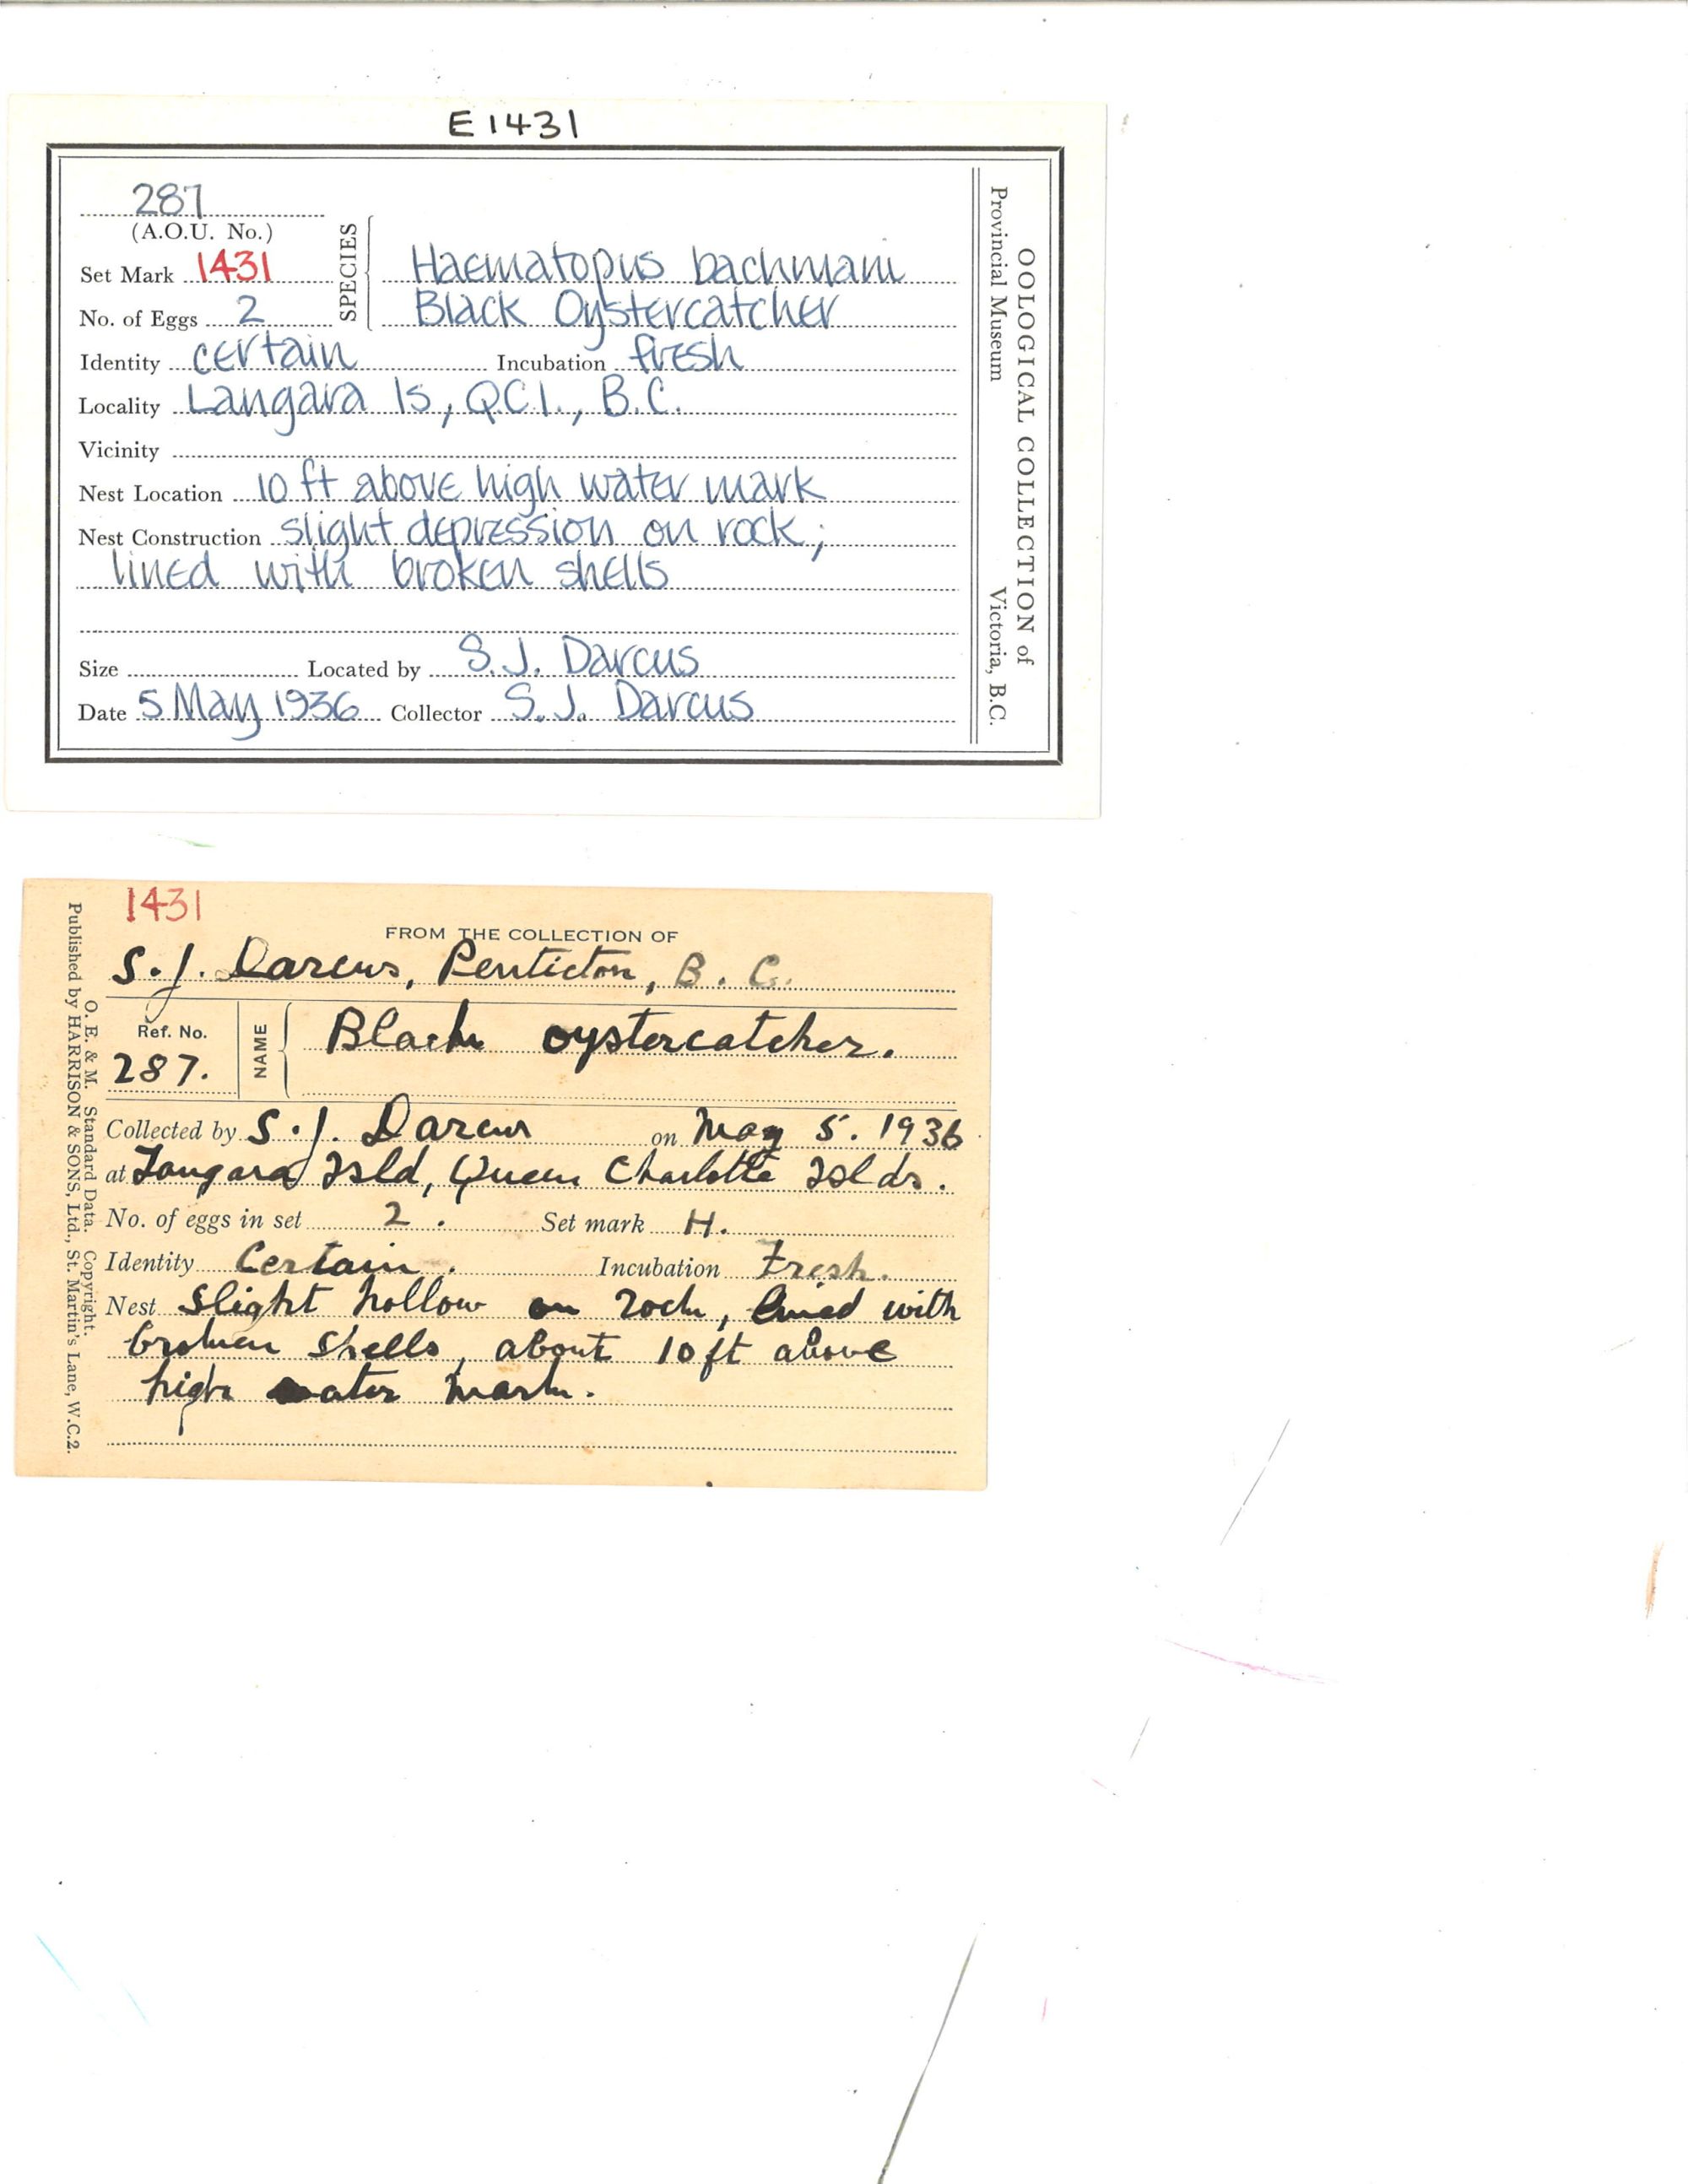 E1431
287
(A.O.U. No.)
Set Mark 1431
SPECIES
Haematopus bachmani
No. of Eggs 2
Black Oystercatcher
Identity certain Incubation fresh
Locality Langara Is, Q.C.I., B.C.
Vicinity
Nest Location 10 ft above high water mark
Nest Construction slight depression on rock;
lined with broken shells
Size Located by S.J. Darcus
Date 5 May 1936 Collector S.J. Darcus
OOLOGICAL COLLECTION of
Provincial Museum Victoria, B.C.
1431
FROM THE COLLECTION OF
S.J. Darcus, Penticton, B.C.
Ref. No.
287.
NAME
Black oystercatcher.
Collected by S.J. Darcus on May 5. 1936
at Langara Isld, Queen Charlotte Islds.
No. of eggs in set 2. Set mark H.
Identity Certain. Incubation Fresh.
Nest slight hollow on rock, lined with
broken shells, about 10 ft above
high water mark.
O. E. & M. Standard Data. Copyright.
Published by HARRISON & SONS, Ltd., St. Martin's Lane, W.C.2.